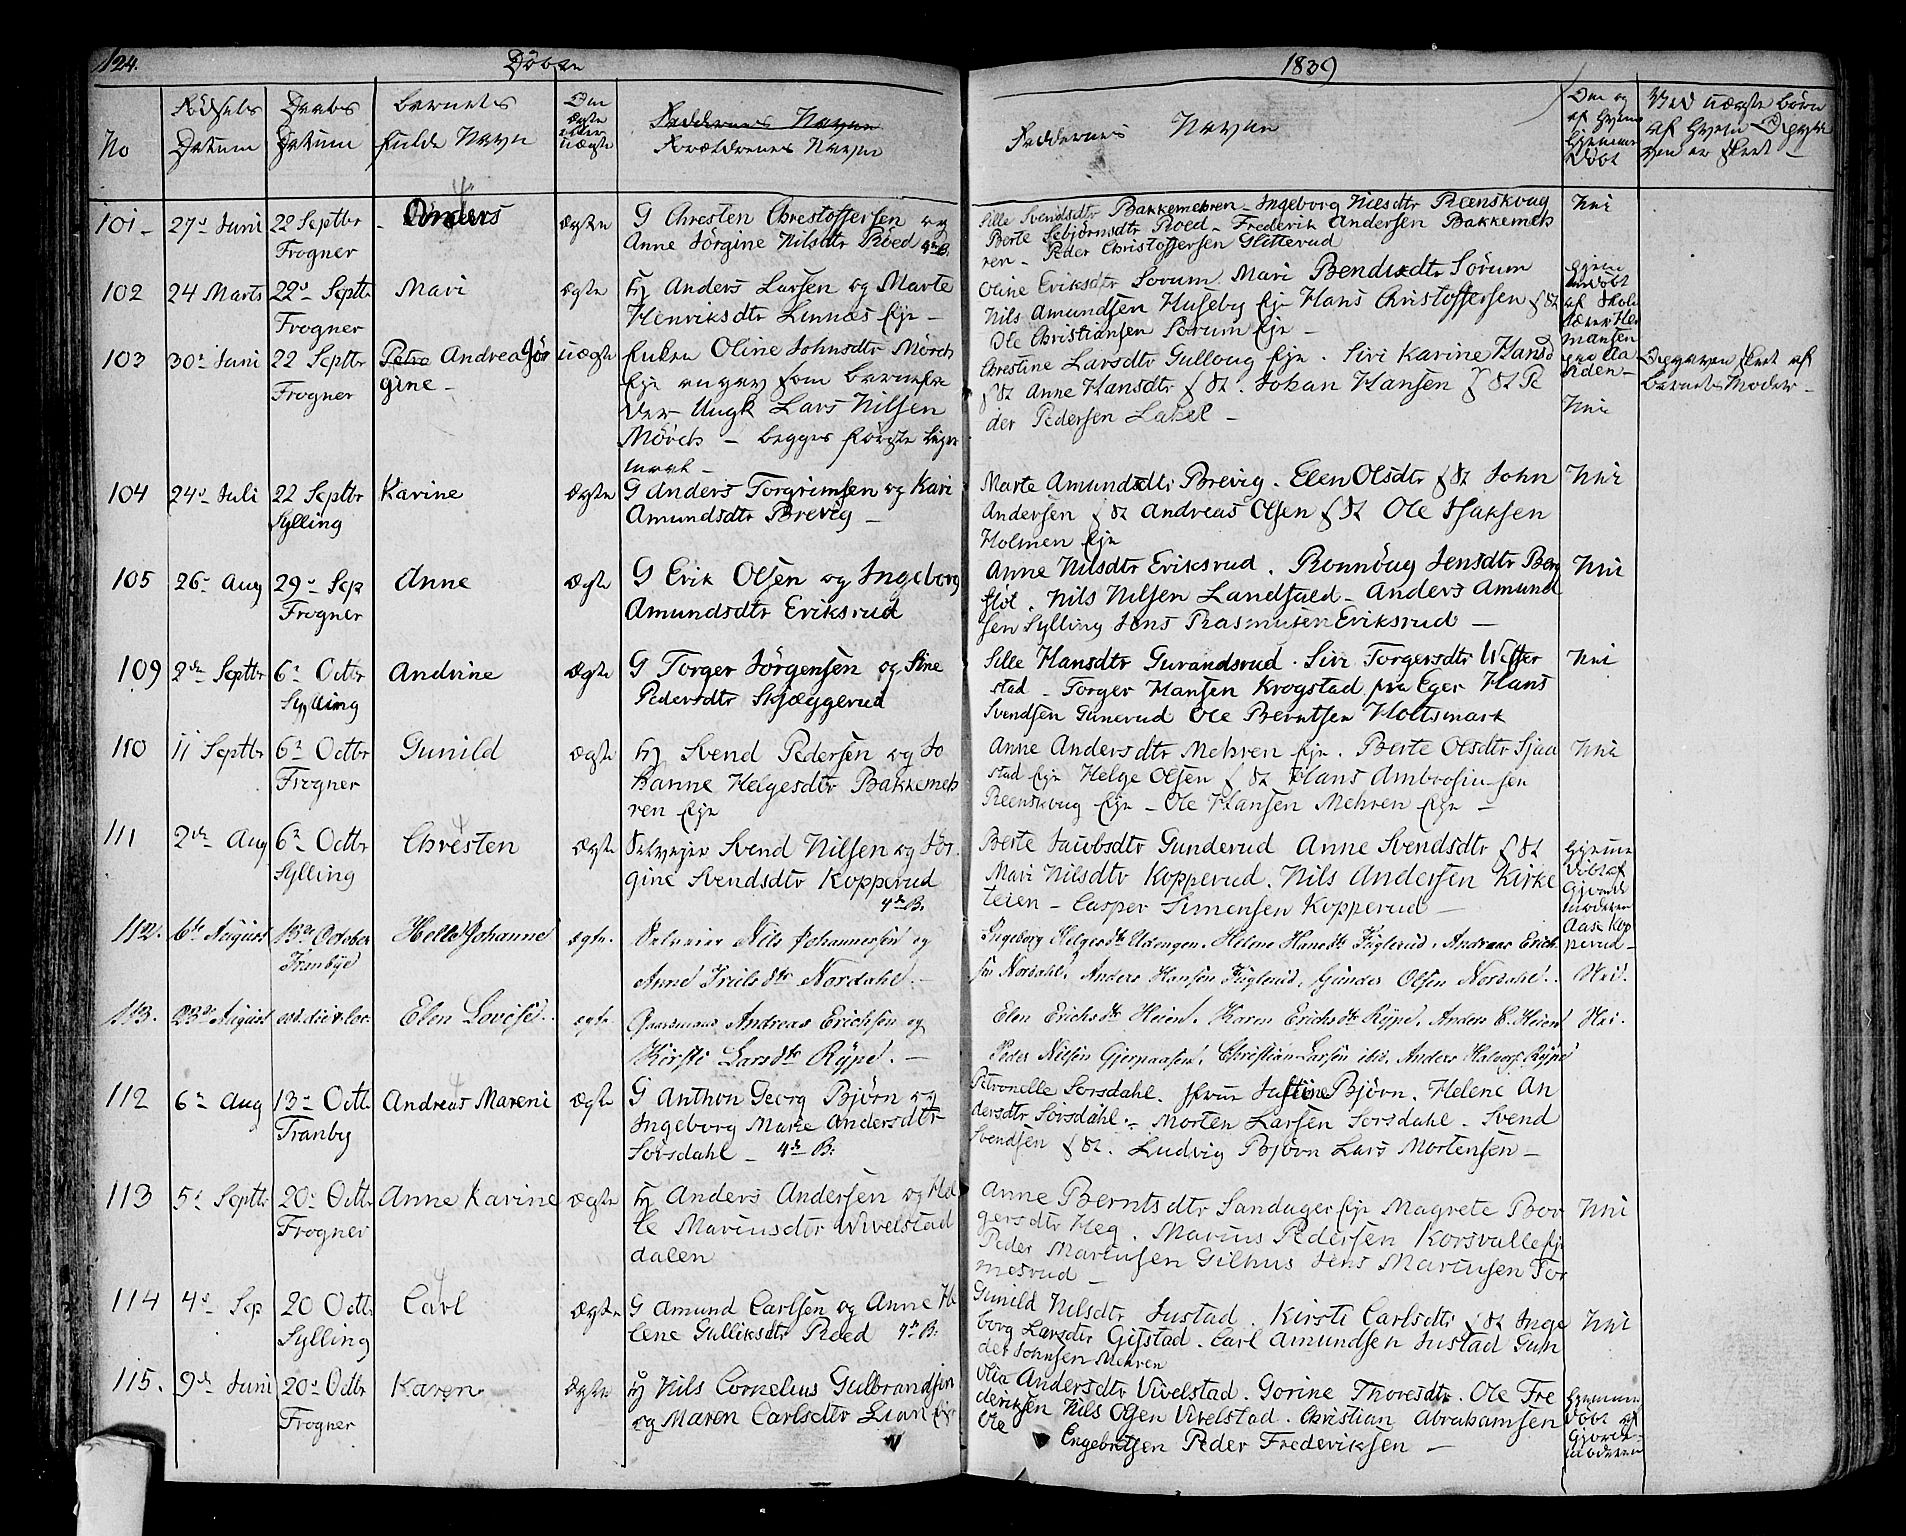 124.
Döbte
1839
No
Födsels
Datum
Daabs
Datum
Barnets
fulde Navn
Om
ægte
eller
uægte
Faddernes Navne
Forældrenes Navne
Faddernes Navne
Om og
af hvem
hjemme
döbt
Ved uægte börn
af hvem Opgiv
101 27 Juni 22 Septbr Anders ægte G Chresten Chrestoffersen og
Frogner
Anne Jörgine Nilsdtr Röed 4de B.
Sille Svendsdtr Bakkemehren Ingeborg Nielsdtr Reenskoug
Berte Roed Frederik Andersen Bakkemeh
ren Peder Christoffersen Glitterud
Nei
102 24 Marts 22 Septbr Mari ægte Anders Larsen og Marte
Frogner
Henriksdtr Linnæs Eje
Oline Eriksdtr Sorum Mari Bendixdtr Sörum
Nils Amundsen Huseby Eje Hans Christoffersen
Ole Christiansen Sorum Eje
103 30 Juni 22 Septbr Petre Andrea Jör uægte Enken Oline Johnsdtr Mörch
Frogner
gine
Eje angav som Barnefa
der Ungk Lars Nilsen
Mörch begges förste Leier
maal
Chrestine Larsdtr Gulloug Eje Siri Karine Hansd
Anne Hansdtr Johan Hansen Pe
der Pedersen Lahel
Nei
Opgaven skeet af
Barnets Moder
104 24 Juli 22 Septbr Karine ægte G Anders Torgrimsen og Kari
Sylling
Amundsdtr Brevig
Marte Amundsdtr Brevig Elen Olsdtr John
Andersen Andreas Olsen Ole Isaksen
Holmen Eje
Nei
105 26 Aug 29 Sep Anne ægte G Erik Olsen og Ingeborg
Frogner
Amundsdtr Eriksrud
Anne Nilsdtr Eriksrud Ronnöug Jensdtr Berg
flöt Nils Nilsen Landfald Anders Amund
sen Sylling Jens Rasmusen Eriksrud
Nei
109 2de Septbr 6 Octbr Andrine ægte G Torger Jörgensen og Sine
Sylling
Pedersdtr Skjæggerud
Sille Hansdtr Gurandsrud Siri Torgersdtr
stad Torger Hansen Krogstad fra Eger Hans
Svendsen Gunerud Ole Berntsen Holtsmark
Nei
110 11 Septbr 6 Octbr Gunild ægte Svend Pedersen og Jo
Frogner
hanne Helgesdtr Bakkemeh
ren Eje
Anne Andersdtr Mehren Eje Berte Olsdtr Sjaa
stad Eje Helge Olsen Hans Ambrosiusen
Reenskoug Eje Ole Hansen Mehren Eje
Nei
111 2de Aug 6 Octbr Chresten ægte Selveier Svend Nilsen og Jör
Sylling
gine Svendsdtr Kopperud
4de B.
Berte Jacobsdtr Gunderud Anne Svendsdtr
Mari Nilsdtr Kopperud Nils Andersen Kirke
teien Casper Simensen Kopperud
hjemme
döbt af
Gjorde
moderen
Aase Kop
perud
112. 6te August 13de October Helle Johanne ægte. Selveier Nils Johannesen og
Tranbye
Anne Trulsdtr Nordahl.
Ingeborg Helgesdtr Eldengen. Helene Hansdtr Fuglerud. Andreas Erich
sen Nordahl. Anders Hansen Fuglerud, Gunder Olsen Nordahl.
Nei.
113. 23de August eod. die & loc. Elen Lovise. ægte Gaardmand Andreas Erichsen og
Kirsti Larsdtr Rype.
Elen Erichsdtr Heien. Karen Erichsdtr Rype. Anders E. Heien
Peder Nilsen Gjerpaasen. Christian Larsen ibid. Anders Halvors. Rype
Nei.
112 6 Aug 13 Octbr Andreas Mareni ægte G Anthon Georg Björn og
Tranby
Ingeborg Marie Andersdtr
Sörsdahl 4de B:
Petronelle Sorsdahl. Justine Björn. Helene An
dersdtr Sörsdahl. Morten Larsen Sorsdahl Svend
Svendsen Ludvig Björn Lars Mortensen
113 5 Septbr 20 Octbr Anne Karine ægte Anders Andersen og Hel
Frogner
le Mariusdtr Wivelstad
dalen
Anne Berntsdtr Sandager Eje Magrete Bor
gersdtr Heg. Marius Pedersen Korsvalle Eje
Peder Martusen Gilhus Jens Martusen Tor
mesrud
Nei
114 4 Sep 20 Octbr Carl ægte G Amund Carlsen og Anne He
Sylling
lene Gulliksdtr Roed 4de B:
Gunild Nilsdtr Justad Kirsti Carlsdtr Inge
borg Larsdtr Gifstad. Carl Amundsen Justad Gun
der Johnsen Mehren
Nei
115. 9de Juni 20 Octbr Karen ægte Nils Cornelius Gulbrandsen
Frogner
og Maren Carlsdtr Lian Eje
Olia Andersdtr Vivelstad. Gorine Thoresdtr. Ole Fre
deriksen Nils Olsen Vivelstad. Christian Abrahamsen
Ole
Engebretsen Peder Frederiksen
hjemme
döbt af
Gjorde
moderen